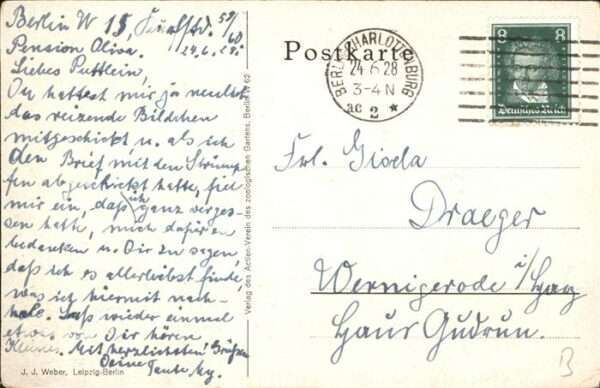 Berlin W 15, 59/60
Pension Oliva. 24.6.28.
Liebes Puttlein,
Du hattest mir ja neulich
das reizende Bildchen
mitgeschickt u. als ich
den Brief mit den Strümp-
fen abgeschickt hatte, fiel
mir ein, daß ich ganz verges-
sen hatte, mich dafür zu
bedanken u. Dir zu sagen,
daß ich es allerliebst finde,
was ich hiermit nach-
hole. Laß wieder einmal
etwas von Dir hören
Kleines. Mit herzlichsten Grüßen
Deine
Tante
J. J. Weber, Leipzig-Berlin
Verlag des Actien-Verein des zoologischen Gartens, Berlin W 62
Postkarte
BERLIN-CHARLOTTENBURG
24.6.28
3-4 N
ac 2 *
8 8
Deutsches Reich
Frl. Gisela
Draeger
Wernigerode i/Harz
Haus Gudrun.
B